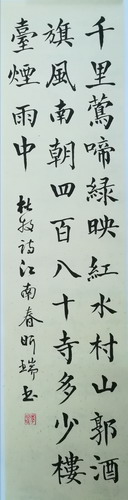 千里鶯啼綠映紅水村山郭酒
旗風南朝四百八十寺多少樓
臺煙雨中
杜牧詩江南春昕瑞書